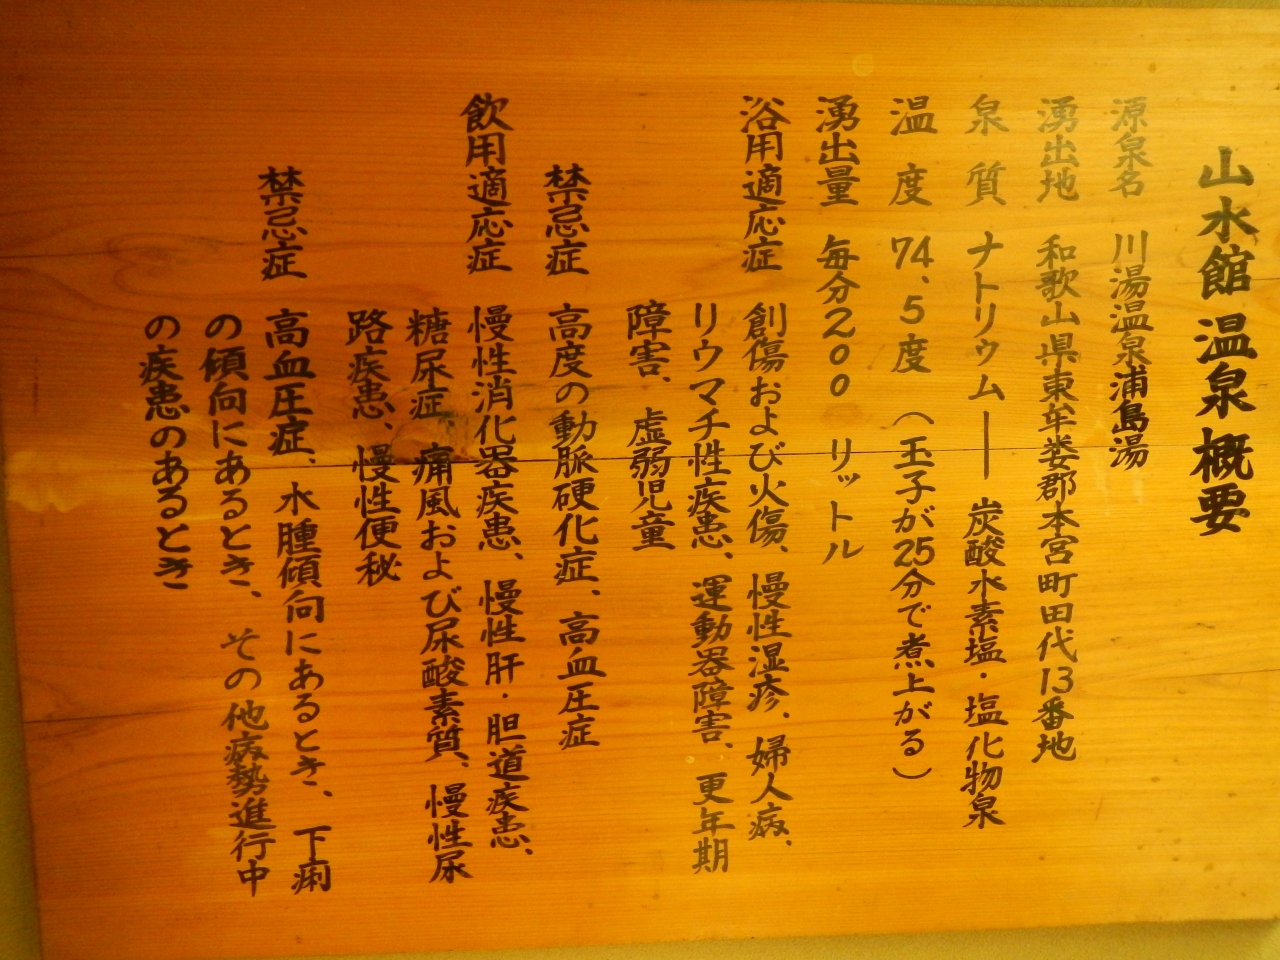 山水館 温泉概要
源泉名 川湯温泉浦島湯
湧出地 和歌山県東牟婁郡本宮町田代13番地
泉質 ナトリウム―炭酸水素塩・塩化物泉
温度 74、5度 （玉子が25分で煮上がる）
湧出量 毎分200 リットル
浴用適応症 創傷および火傷、慢性湿疹、婦人病、
リウマチ性疾患、運動器障害、更年期
障害、虚弱児童
禁忌症 高度の動脈硬化症、高血圧症
飲用適応症 慢性消化器疾患、慢性肝・胆道疾患、
糖尿症、痛風および尿酸素質、慢性尿
路疾患、慢性便秘
禁忌症 高血圧症、水腫傾向にあるとき、下痢
の傾向にあるとき、その他病勢進行中
の疾患のあるとき